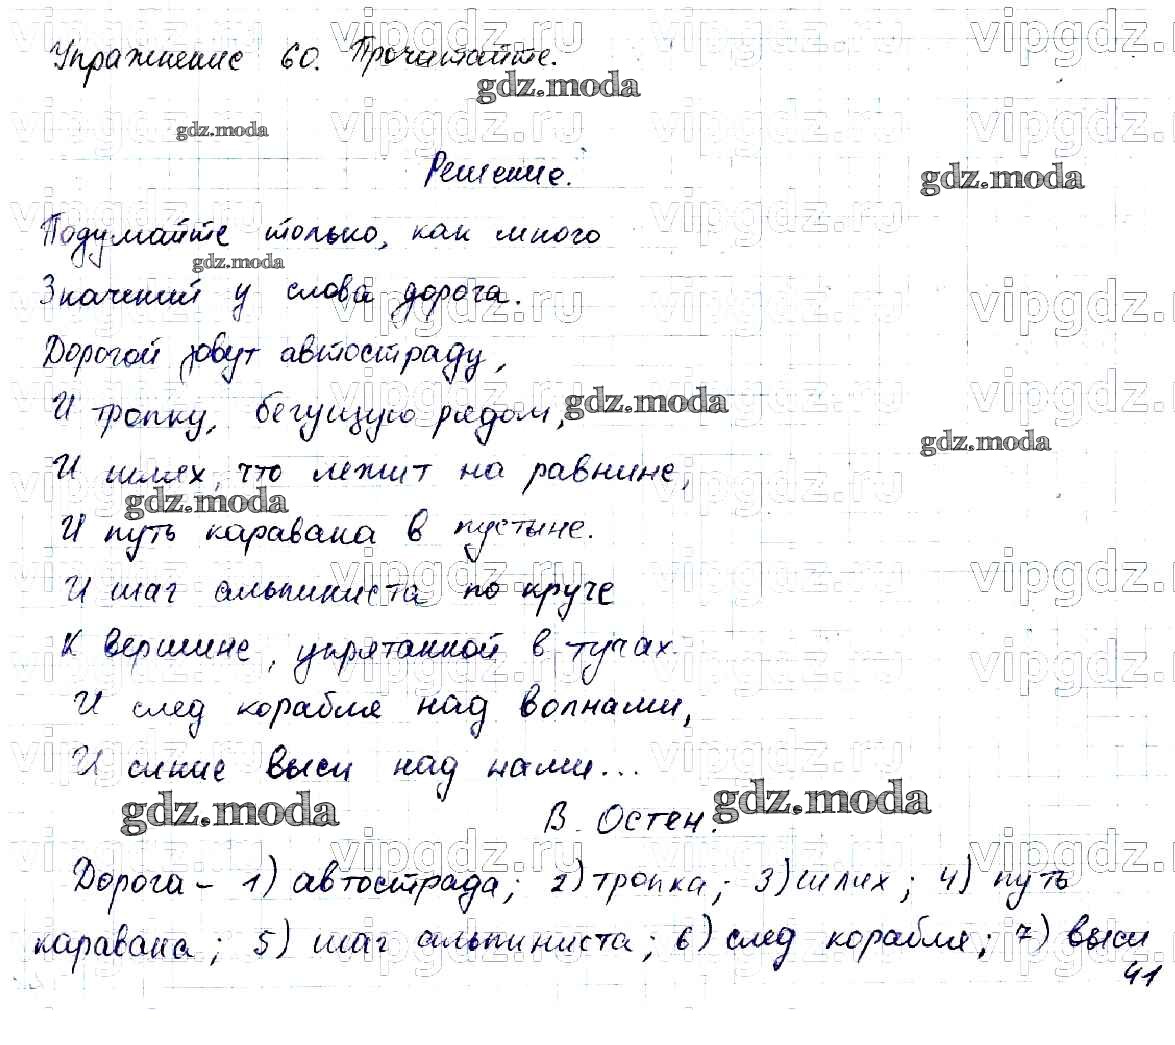 Упражнение 60. Прочитайте.
gdz.moda
gdz.moda
Решение.
gdz.moda
Подумайте только, как много
gdz.moda
Значений у слова дорога.
Дорогой зовут автостраду,
И тропку, бегущую рядом,
gdz.moda
gdz.moda
И шлях, что лежит на равнине,
gdz.moda
И путь каравана в пустыне.
И шаг альпиниста по круче
К вершине, упрятанной в тучах.
И след корабля над волнами,
И синие выси над нами...
gdz.moda
gdz.moda
В. Остен.
Дорога – 1) автострада; 2) тропка; 3) шлях; 4) путь
каравана; 5) шаг альпиниста; 6) след корабля; 7) выси
41
vipgdz.ru